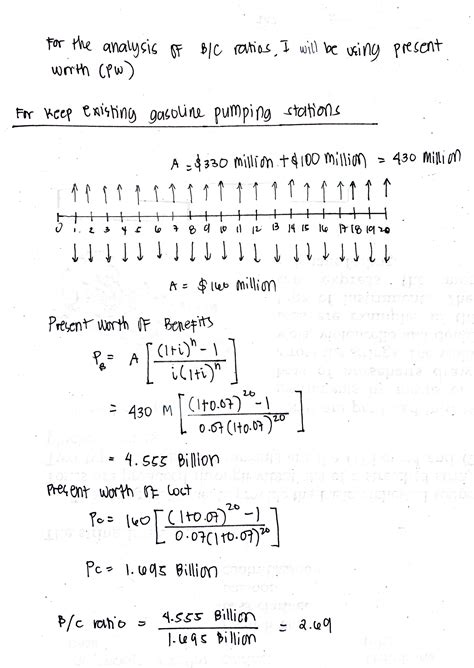 For the analysis of B/C ratios, I will be using present
worth (PW)
For Keep existing gasoline pumping stations
A = $330 million + $100 million = 430 million
0 1 2 3 4 5 6 7 8 9 10 11 12 13 14 15 16 17 18 19 20
A = $160 million
Present Worth of Benefits
P_B = A [ ((1+i)^n - 1) / (i(1+i)^n) ]
= 430 M [ ((1+0.07)^20 - 1) / (0.07(1+0.07)^20) ]
= 4.555 Billion
Present Worth of Cost
Pc = 160 [ ((1+0.07)^20 - 1) / (0.07(1+0.07)^20) ]
Pc = 1.695 Billion
B/C ratio = 4.555 Billion / 1.695 Billion = 2.69